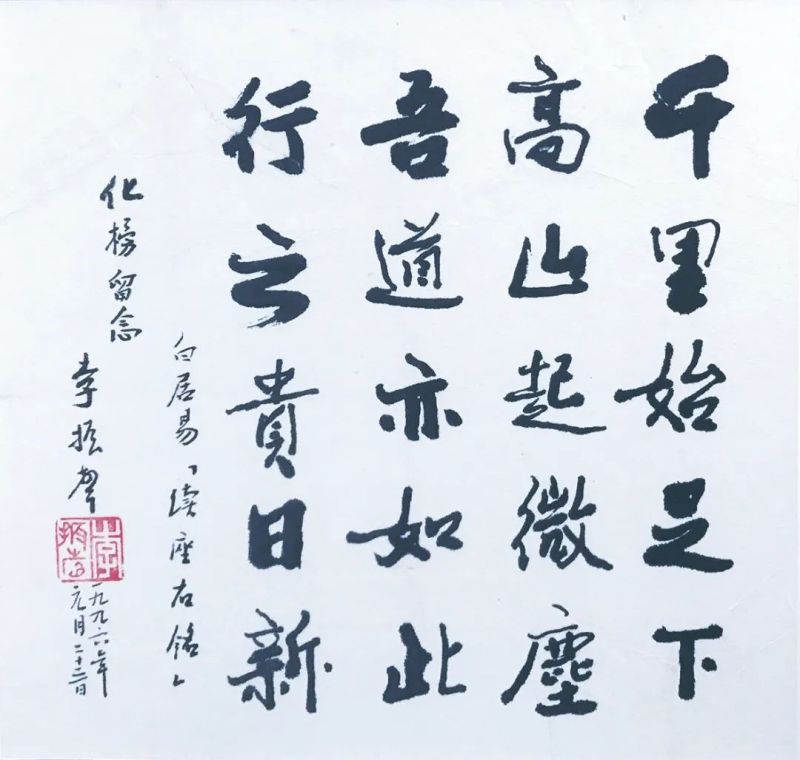 千里始足下
高山起微塵
吾道亦如此
行之貴日新
白居易「续座右銘」
化榜留念
李振聲
一九九六年
元月二十二日